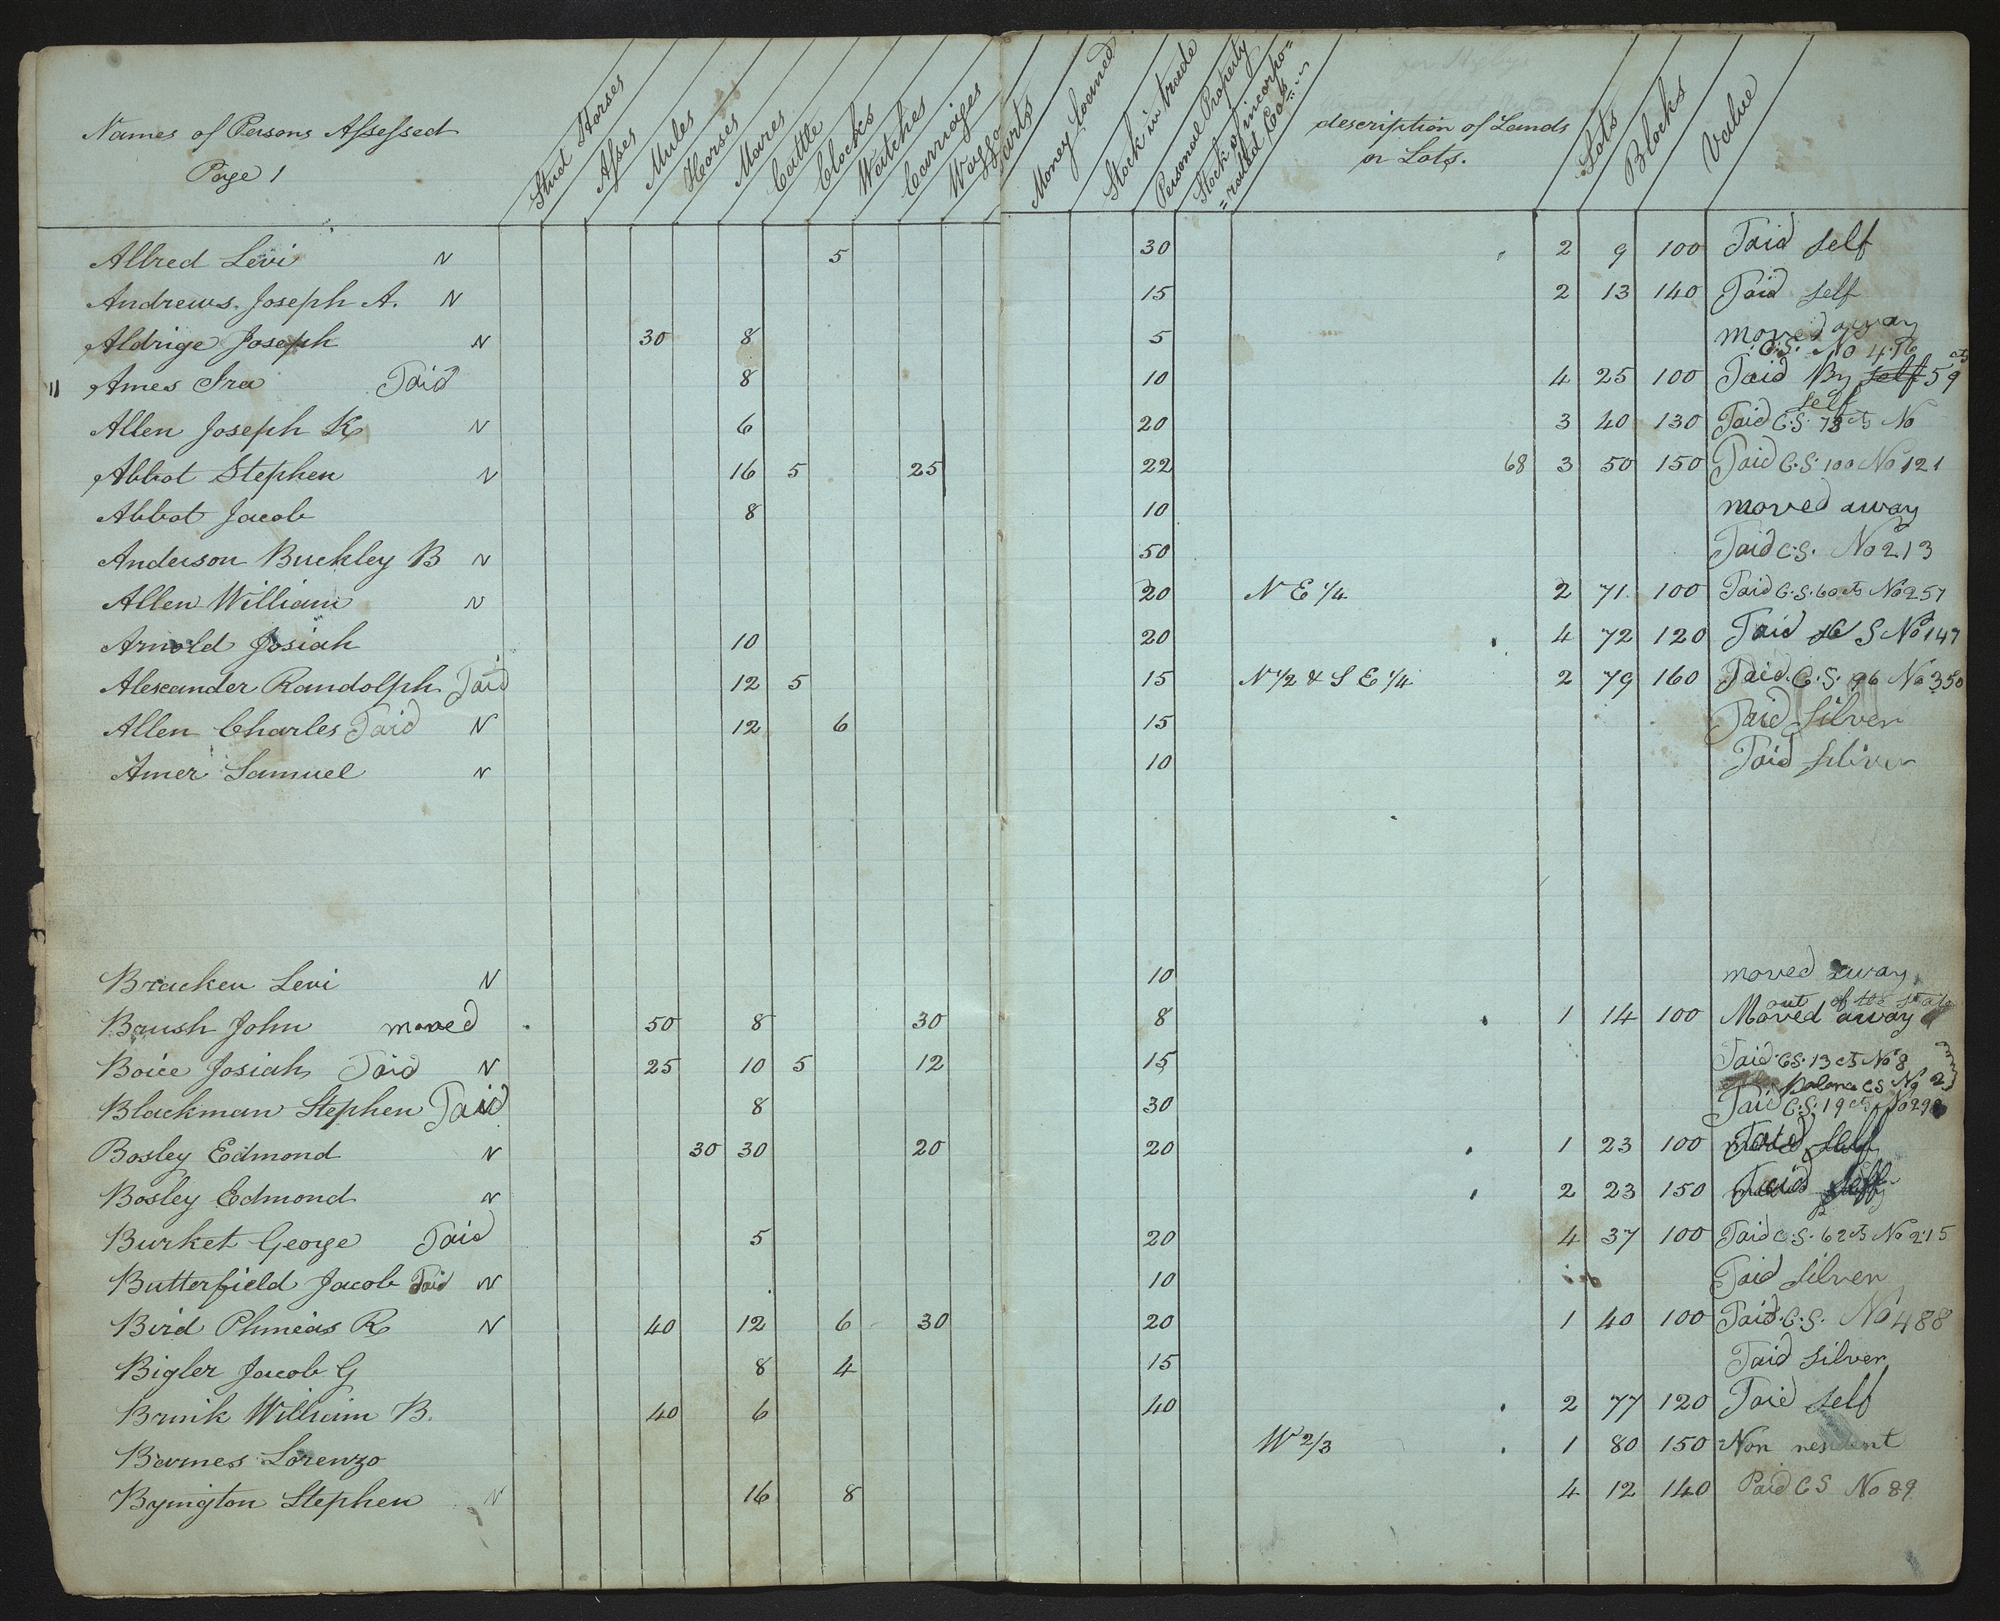 Names of Persons Assessed
Page 1
Stud Horses
Asses
Mules
Horses
Mares
Cattle
Clocks
Watches
Carriages
Carts
Money loaned
Stock in trade
Personal Property
Stock of incorpo=
=rated Cos
description of Lands
or Lots.
Lots
Blocks
Value
Allred Levi N 5 30 2 9 100 Paid self
Andrews Joseph A. N 15 2 13 140 Paid self
Aldrige Joseph N 30 8 5 moved away
C.S. No 476
11 Ames Ira Paid 8 10 4 25 100 Paid By self 59 cts
self
Allen Joseph K N 6 20 3 40 130 Paid C.S. 78 cts No
Abbot Stephen N 16 5 25 22 68 3 50 150 Paid C.S. 100 No 121
Abbot Jacob 8 10 moved away
Anderson Buckley B N 50 Paid C.S. No 213
Allen William N 20 N E 1/4 2 71 100 Paid C.S. 60 cts No 257
Arnold Josiah 10 20 4 72 120 Paid S No 147
Alexander Randolph Paid 12 5 15 N 1/2 & S E 1/4 2 79 160 Paid C.S. 96 No 350
Allen Charles Paid N 12 6 15 Paid Silver
Amer Samuel N 10 Paid Silver
Bracken Levi N 10 moved away
out of the state
Brush John moved 50 8 30 8 1 14 100 Moved away
Boice Josiah Paid N 25 10 5 12 15 Paid C.S. 13 cts No 8
Balance CS No 2
Blackman Stephen Paid 8 30 Paid C.S. 19 cts No 298
Bosley Edmond N 30 30 20 20 1 23 100 Paid self
Bosley Edmond N 2 23 150 Paid self
Burket George Paid 5 20 4 37 100 Paid C.S. 62 cts No 215
Butterfield Jacob Paid N 10 Paid Silver
Bird Phineas R N 40 12 6 30 20 1 40 100 Paid C.S. No 488
Bigler Jacob G 8 4 15 Paid Silver
Brink William B. 40 6 40 2 77 120 Paid self
Barnes Lorenzo W 2/3 1 80 150 Non resident
Byington Stephen N 16 8 4 12 140 Paid CS No 89